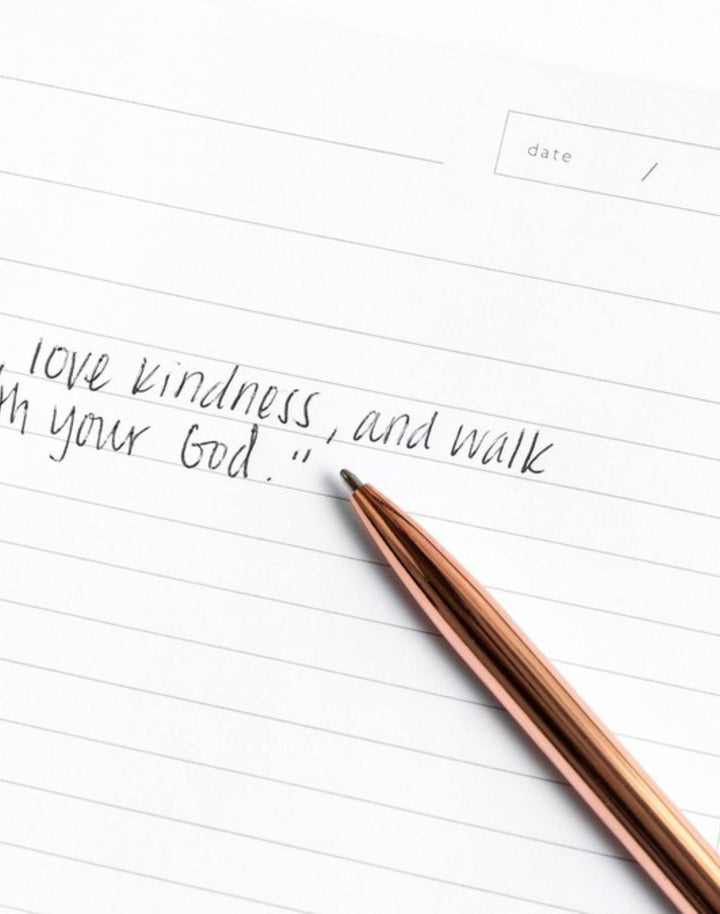 date /
, love kindness, and walk
your God."